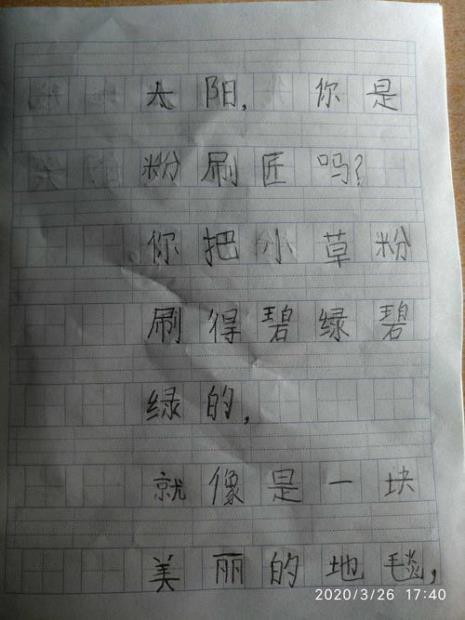 太阳,你是
粉刷匠吗?
你把小草粉
刷得碧绿碧
绿的,
就像是一块
美丽的地毯,
2020/3/26 17:40